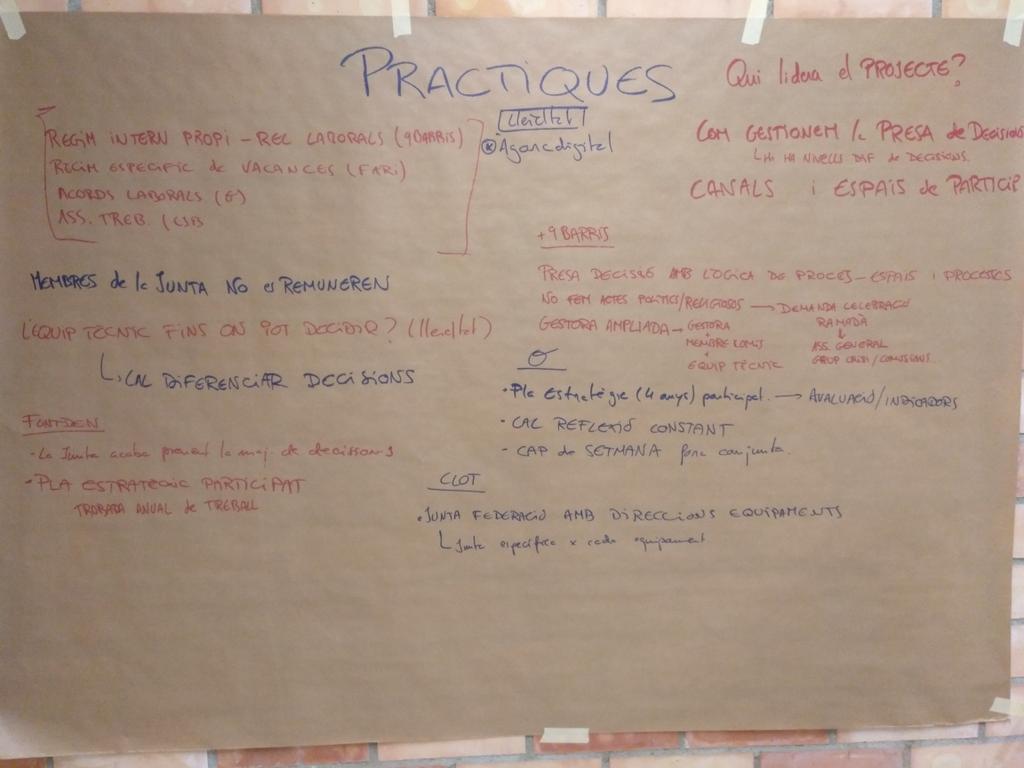 PRACTIQUES
Qui lidera el PROJECTE?
Lleialtat
Àgoracdigital
COM GESTIONEM la PRESA de Decisions
HI HA NIVELLS DIF de DECISIONS.
CANALS i ESPAIS de PARTICIP
REGIM INTERN PROPI - REL LABORALS (9BARRIS)
REGIM ESPECIFIC de VACANCES (FARI)
ACORDS LABORALS
ASS. TREB. (CSB
MEMBRES de la JUNTA NO es REMUNEREN
L'EQUIP TÈCNIC FINS ON POT DECIDIR? (lleialtat)
CAL DIFERENCIAR DECISIONS
FONTDEN
- La Junta acaba prenent la maj. de decissons
- PLA ESTRATEGIC PARTICIPAT
TROBADA ANUAL de TREBALL
+ 9 BARRIS
PRESA DECISIÓ AMB LÒGICA DE PROCES - ESPAIS i PROCESSOS
NO FEM ACTES POLITICS/RELIGIOSOS → DEMANDA CELEBRACIÓ
RAMADÀ
GESTORA AMPLIADA → GESTORA
MEMBRE COMIS
EQUIP TÈCNIC
ASS. GENERAL
GRUP CRISI/COMISSIONS
· Pla Estratègic (4 anys) participat. → AVALUACIÓ/INDICADORS
· CAL REFLEXIÓ CONSTANT
- CAP de SETMANA fora conjunta.
CLOT
. JUNTA FEDERACIÓ AMB DIRECCIONS EQUIPAMENTS
Junta específica x cada equipament